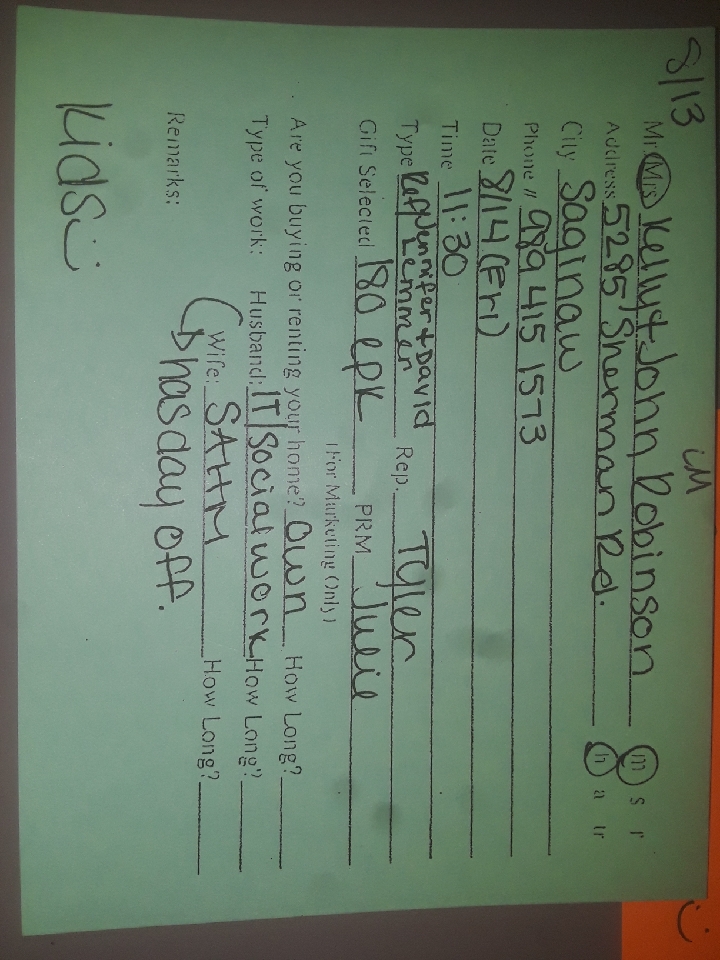 8/13 LM
Mr. Mrs Kelly + John Robinson m s r
Address 5285 Sherman Rd. h a tr
City Saginaw
Phone # 989 415 1573
Date 8/14 (Fri)
Time 11:30
Type Ref/Jennifer + David Lemmer Rep. Tyler
Gift Selected 180 epk PRM Julie
(For Marketing Only)
Are you buying or renting your home? Own How Long?
Type of work: Husband: IT/Social work How Long?
Wife: SAHM How Long?
Remarks: has day off.
Kids